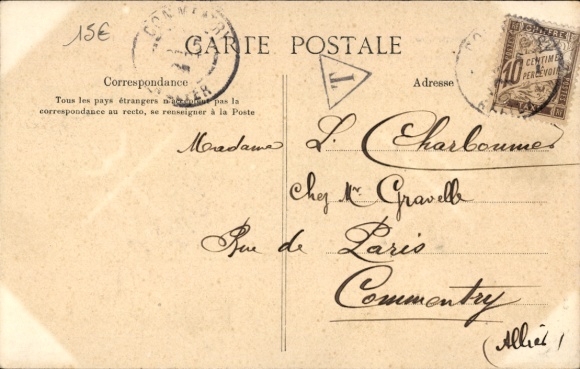 15€
COMMENTRY
ALLIER
CARTE POSTALE
T
CHIFFRE
10 CENTIMES
À PERCEVOIR
Correspondance
Adresse
Tous les pays étrangers n'acceptent pas la
correspondance au recto, se renseigner à la Poste
Madame L. Charbonnier
chez Mr Gravelle
Rue de Paris
Commentry
(Allier)